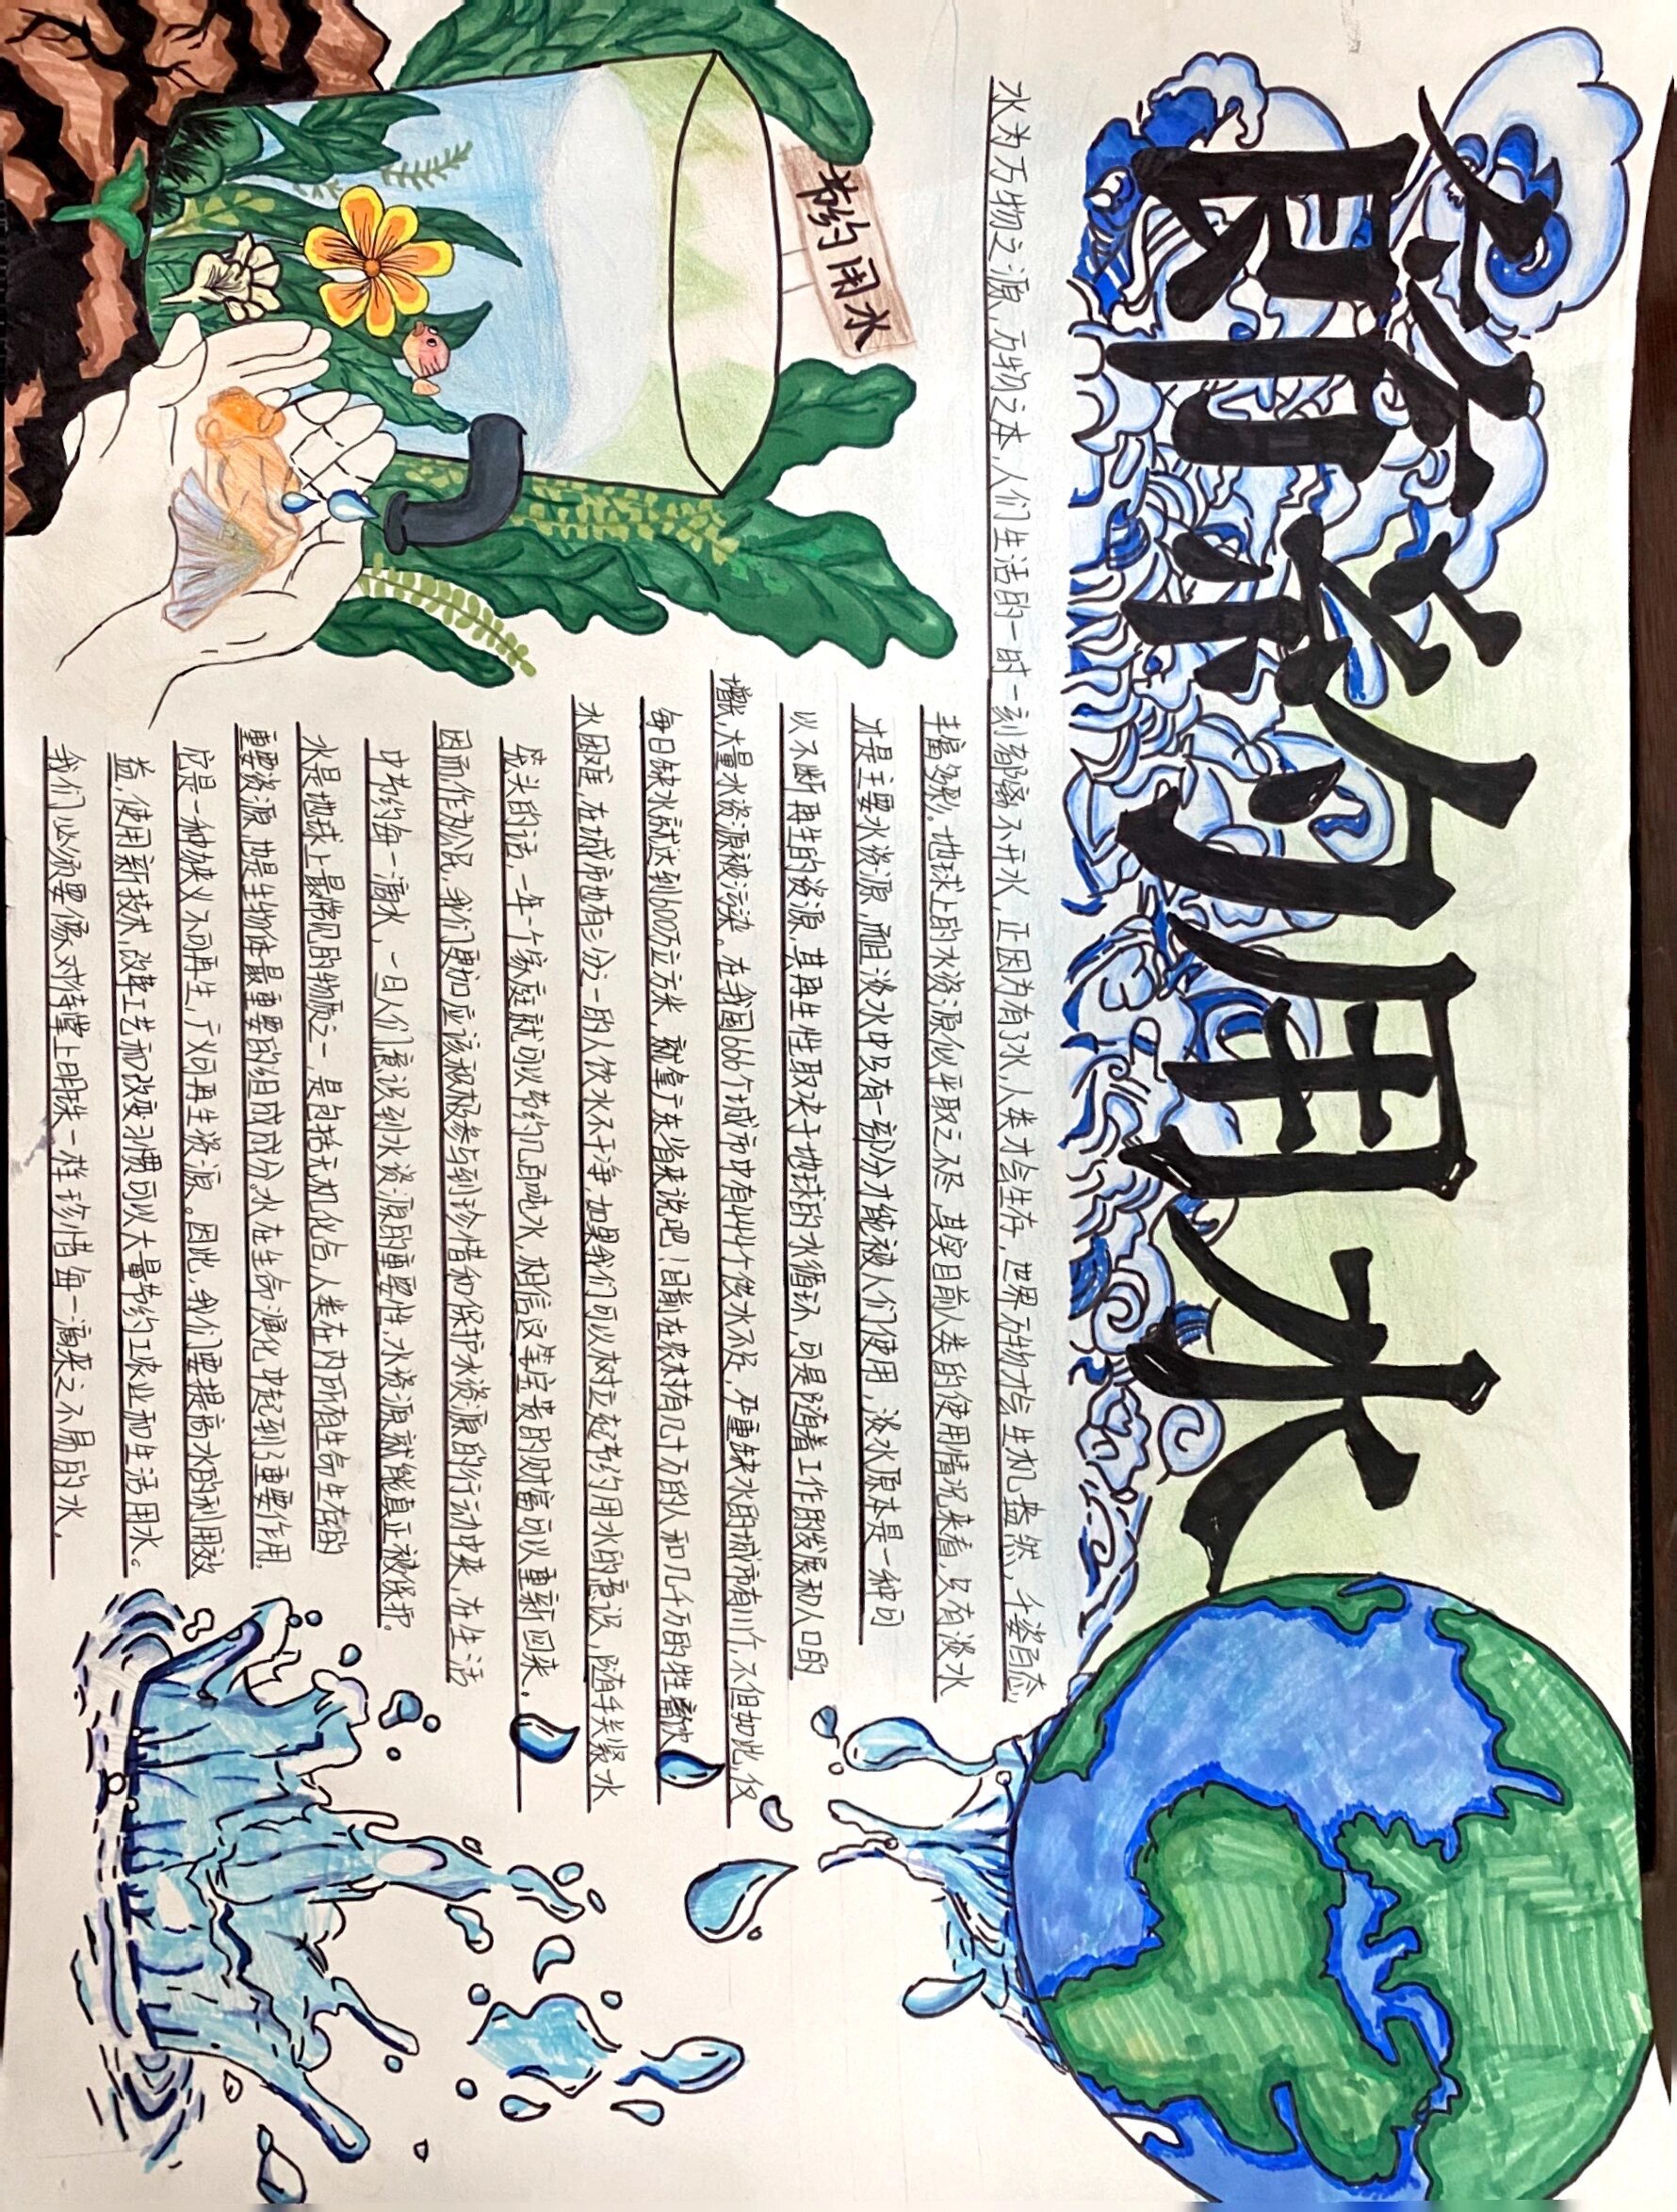 珍惜水
节约用水
节约用水
水为万物之源,万物之本,人们生活的一时一刻都离不开水,正因为有了水,人类才会生存,世界万物才会生机盎然,千姿百态,
丰富多彩。地球上的水资源似乎取之不尽,其实目前人类的使用情况来看,只有淡水
才是主要水资源,而且淡水中只有一部分才能被人们使用,淡水原本是一种可
以不断再生的资源,其再生性取决于地球的水循环,可是随着工作的发展和人口的
增长,大量水资源被污染。在我国666个城市中有444个供水不足,严重缺水的城市有111个,不但如此,仅
每日缺水就达到1600万立方米,就拿广东省来说吧!目前在农村有几十万的人和几千万的牲畜饮
水困难,在城市也有三分之一的人饮水不干净,如果我们可以树立起节约用水的意识,随手关紧水
龙头的话,一年一个家庭就可以节约几百吨水,相信这笔宝贵的财富可以重新回来。
因而,作为公民,我们更加应该积极参与到珍惜和保护水资源的行动中来,在生活
中节约每一滴水,一旦人们意识到水资源的重要性,水资源就能真正被保护。
水是地球上最常见的物质之一,是包括无机化合,人类在内所有生命生存的
重要资源,也是生物体最重要的组成成分。水在生命演化中起到了重要作用。
它是一种狭义不可再生,广义可再生资源。因此,我们要提高水的利用效
益,使用新技术,改革工艺和改变习惯可以大量节约工农业和生活用水。
我们必须要像对待掌上明珠一样珍惜每一滴来之不易的水。